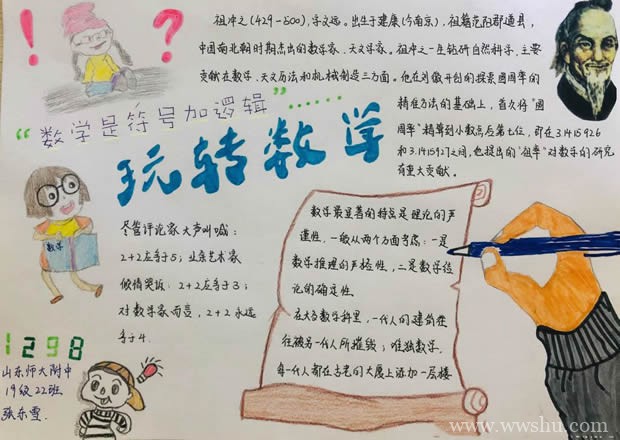 ！
？
祖冲之(429-500),字文远。出生于建康(今南京),祖籍范阳郡遒县,
中国南北朝时期杰出的数学家、天文学家。祖冲之一生钻研自然科学,主要
贡献在数学、天文历法和机械制造三方面。他在刘徽开创的探索圆周率的
精确方法的基础上,首次将"圆
周率"精算到小数点后第七位,即在3.1415926
和3.1415927之间,他提出的"祖率"对数学的研究
有重大贡献。
"数学是符号加逻辑"……
玩转数学
数学
尽管评论家大声叫喊:
2+2左于5;业余艺术家
倾情哭诉:2+2左于3;
对数学家而言,2+2永远
等于4.
数学最显著的特点是理论的严
谨性,一般从两个方面考虑:一是
数学推理的严格性,二是数学结
论的确定性.
在大多数学科里,一代人的建筑往
往被另一代人所摧毁;唯独数学,
每一代人都在古老的大厦上添加一层楼
1298
山东师大附中
19级22班
张乐雪.
www.wwshu.com